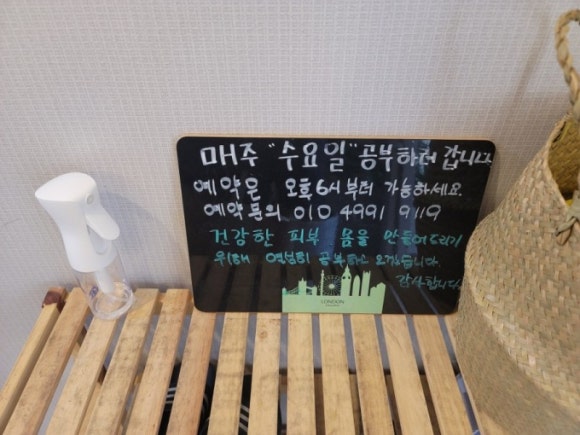 매주 "수요일" 공부하러 갑니다
예약은 오후 6시부터 가능하세요.
예약문의 010 4991 9119
건강한 피부 몸을 만들어드리기
위해 열심히 공부하고 오겠습니다
감사합니다
LONDON